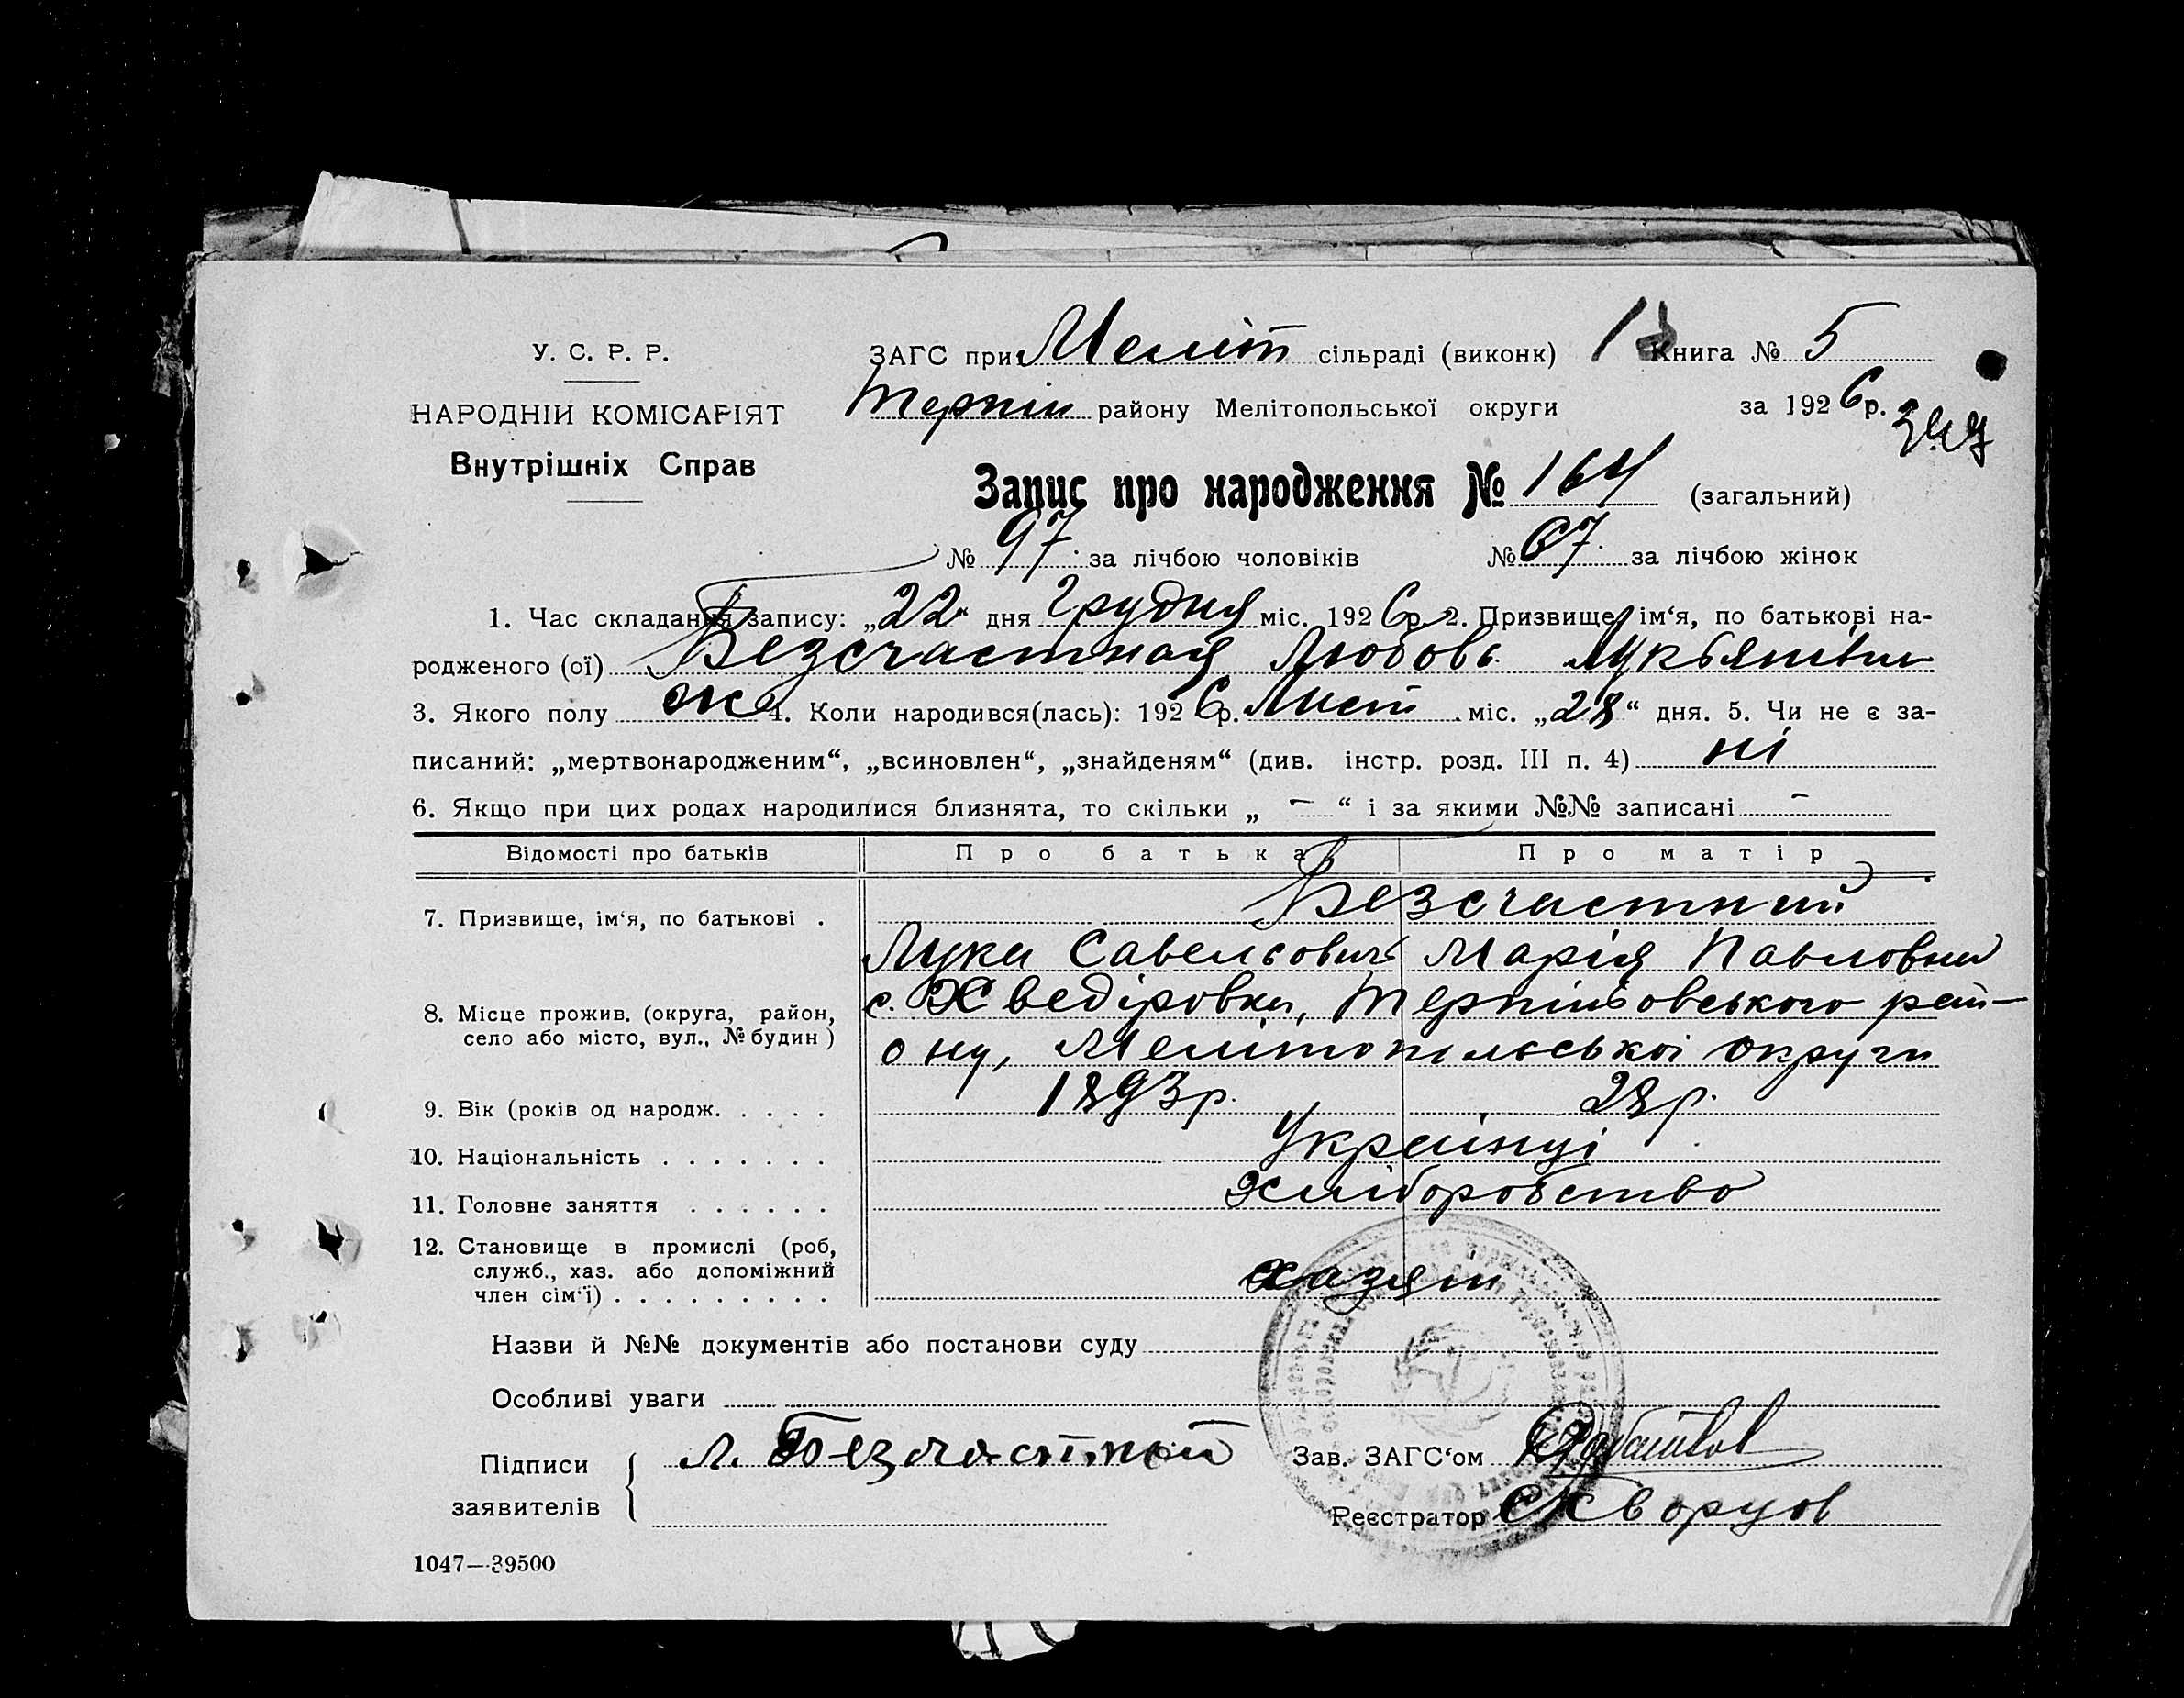 У. С. Р. Р.
НАРОДНІЙ КОМІСАРІЯТ
Внутрішніх Справ
ЗАГС при Меліт сільраді (виконк) Книга № 5
Терпін району Мелітопольської округи за 1926 р.
Запис про народження № 164 (загальний)
№ 97 за лічбою чоловіків № 67 за лічбою жінок
1. Час складання запису: „22“ дня Грудня міс. 1926 р. 2. Призвище, ім‘я, по батькові на-
родженого (ої) Безсчастная Любовь Лукьянівна
3. Якого полу ж 4. Коли народився(лась): 1926 р. Лист міс. „28“ дня. 5. Чи не є за-
писаний: „мертвонародженим“, „всиновлен“, „знайденям“ (див. інстр. розд. III п. 4) ні
6. Якщо при цих родах народилися близнята, то скільки „ — “ і за якими №№ записані —
Відомості про батьків Про батька Про матір
7. Призвище, ім‘я, по батькові . Безсчастний
Лука Савельович Марія Павловна
8. Місце прожив. (округа, район, село або місто, вул., № будин ) с. Хведіровка, Терпіньовського рай-
ону, Мелітопільської округи
9. Вік (років од народж. . . . . 1893 р. 28 р.
10. Національність . . . . . . . Українці
11. Головне заняття . . . . . . Хліборобство
12. Становище в промислі (роб,
служб., хаз. або допоміжний
член сім‘ї) . . . . . . . . . хазяїн
Назви й №№ документів або постанови суду
Особливі уваги
Підписи
заявителів
Л. Безчастный
Зав. ЗАГС‘ом
Реєстратор Скворцов
1047—39500